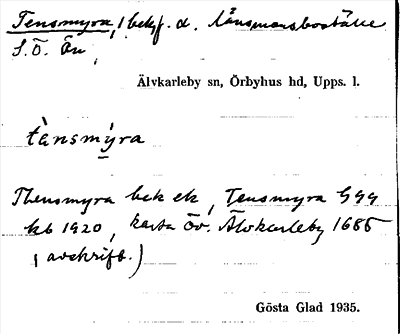 Tensmyra, 1 bebyf. d. länsmansboställe
S. Ö. Ön
Älvkarleby sn, Örbyhus hd, Upps. l.
tènsmy̆ra
Thensmyra bek ek, Tensmyra Ggg
kb 1920, karta Öv. Älvkarleby 1686
(avskrift.)
Gösta Glad 1935.